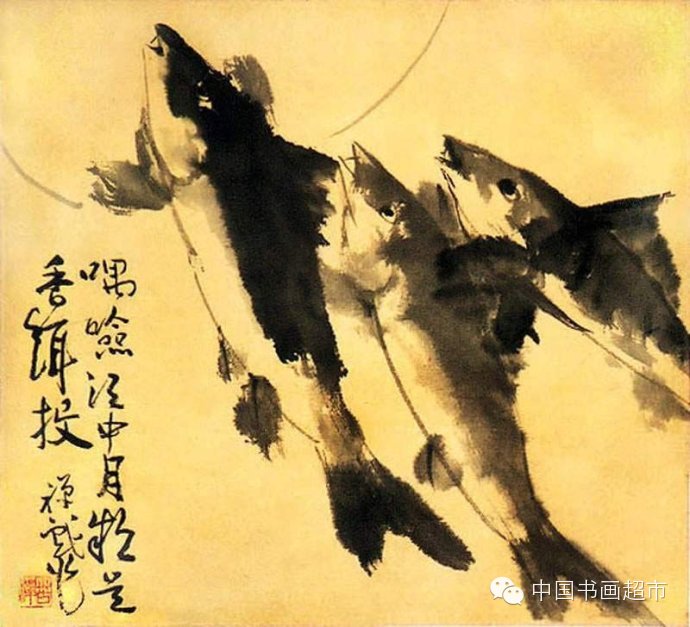 喁噞江中月疑是
香餌投
禅戲
中国书画超市